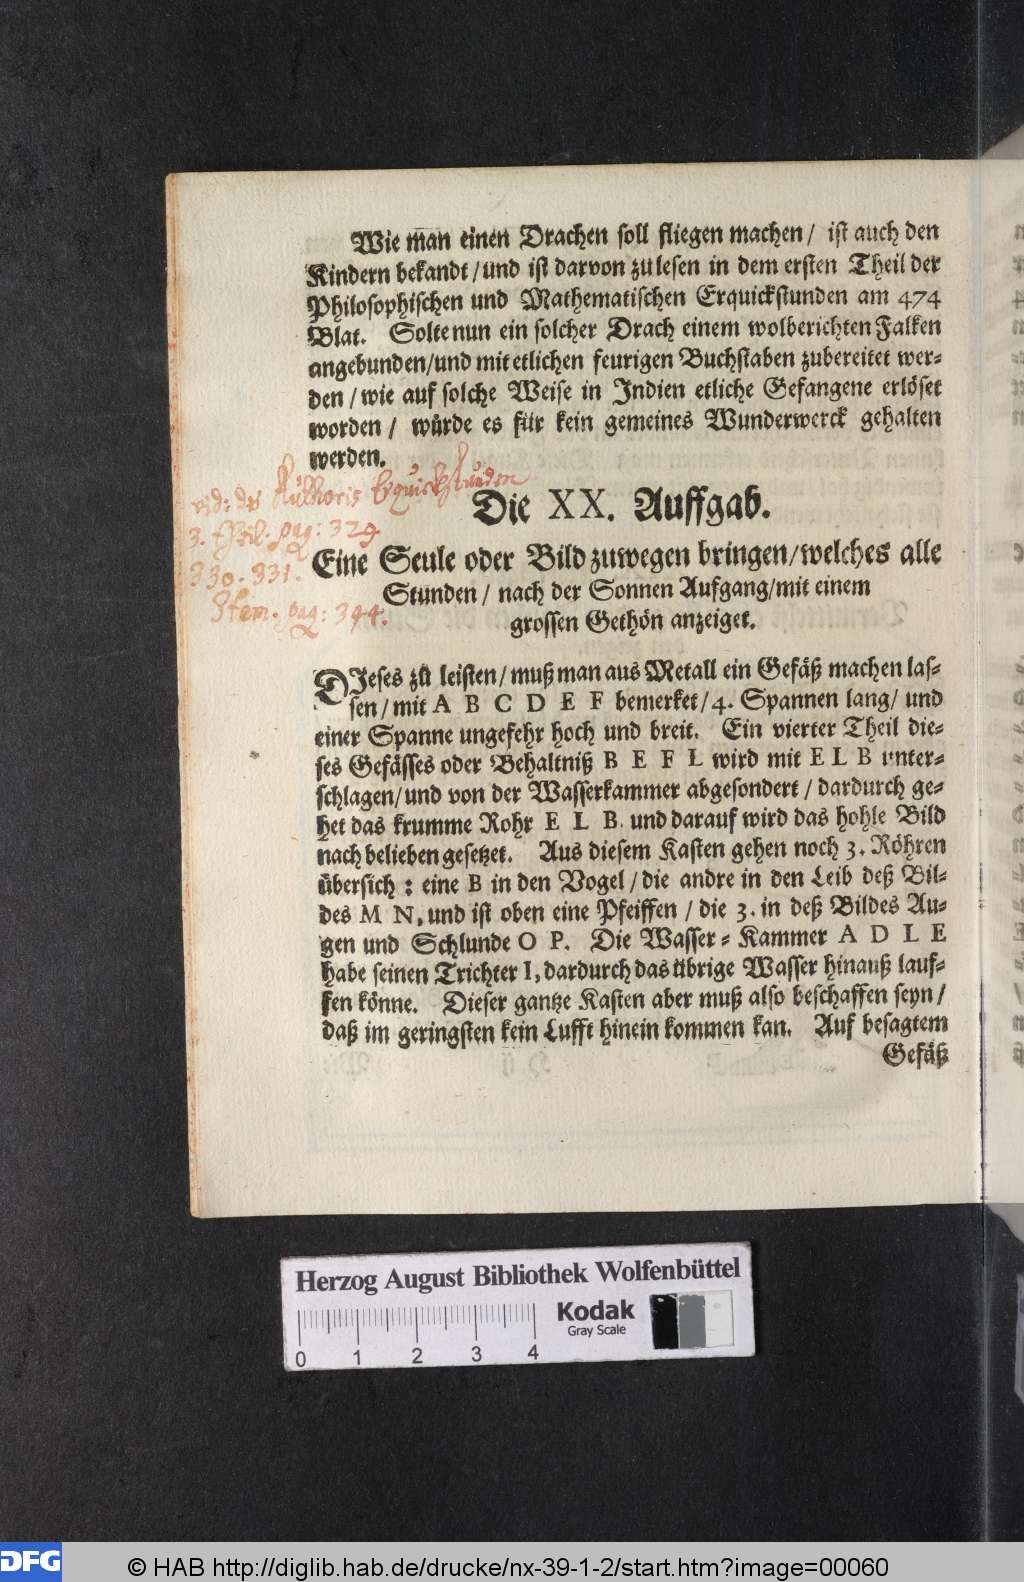 Wie man einen Drachen soll fliegen machen/ ist auch den
Kindern bekandt/und ist darvon zu lesen in dem ersten Theil der
Philosophischen und Mathematischen Erquickstunden am 474
Blat. Solte nun ein solcher Drach einem wolberichten Falken
angebunden/und mit etlichen feurigen Buchstaben zubereitet wer-
den/wie auf solche Weise in Indien etliche Gefangene erlöset
worden/ würde es für kein gemeines Wunderwerck gehalten
werden.
vid: des Authoris Erquickstunden
3. theil. pag: 329
330. 331.
Item. pag: 394.
Die XX. Auffgab.
Eine Seule oder Bild zuwegen bringen/welches alle
Stunden/ nach der Sonnen Aufgang/mit einem
grossen Gethön anzeiget.
DIeses zu leisten/muß man aus Metall ein Gefäß machen las-
sen/mit A B C D E F bemerket/4. Spannen lang/ und
einer Spanne ungefehr hoch und breit. Ein vierter Theil die-
ses Gefässes oder Behaltniß B E F L wird mit E L B unter-
schlagen/und von der Wasserkammer abgesondert/dardurch ge-
het das krumme Rohr E L B. und darauf wird das hohle Bild
nach belieben gesetzet. Aus diesem Kasten gehen noch 3. Röhren
übersich: eine B in den Vogel/die andre in den Leib deß Bil-
des M N, und ist oben eine Pfeiffen/die 3. in deß Bildes Au-
gen und Schlunde O P. Die Wasser-Kammer A D L E
habe seinen Trichter I, dardurch das übrige Wasser hinauß lauf-
fen könne. Dieser gantze Kasten aber muß also beschaffen seyn/
daß im geringsten kein Lufft hinein kommen kan. Auf besagtem
Gefäß
Herzog August Bibliothek Wolfenbüttel
Kodak
Gray Scale
0 1 2 3 4
DFG
© HAB http://diglib.hab.de/drucke/nx-39-1-2/start.htm?image=00060